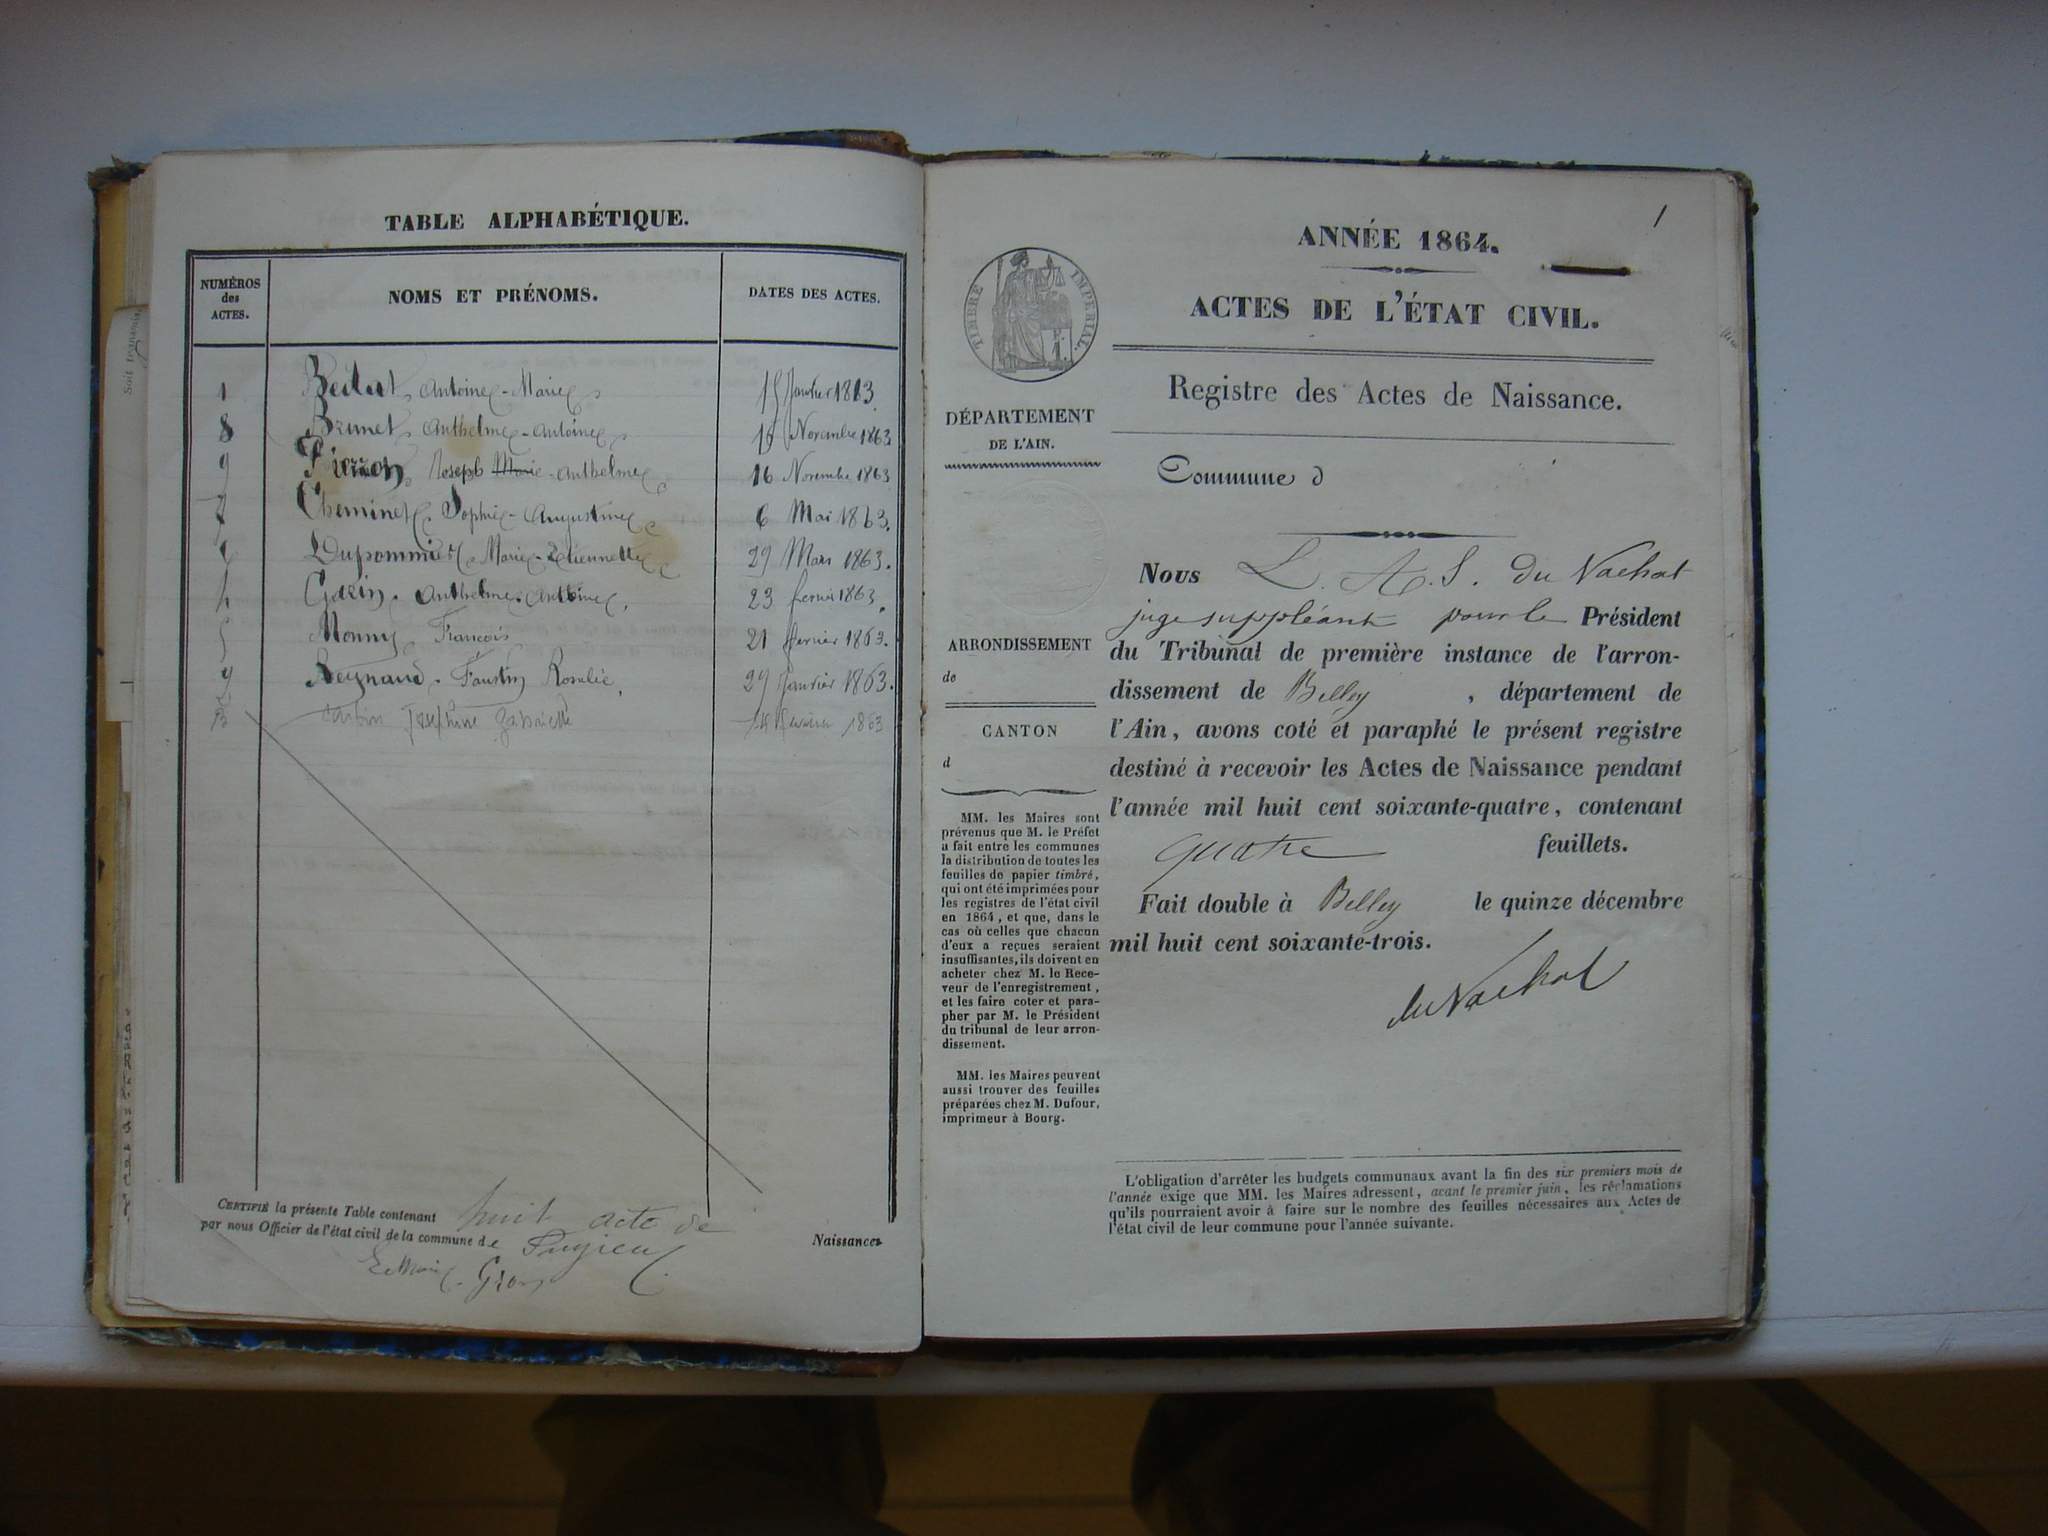 TABLE ALPHABÉTIQUE.
NUMÉROS
des
ACTES.
NOMS ET PRÉNOMS.
DATES DES ACTES.
1 Antoine-Marie 15 Janvier 1863
8 Brunet Anthelme-Antoine 15 Novembre 1863
9 Joseph Marie-Anthelme 16 Novembre 1863
7 Cheminet Sophie-Augustine 6 Mai 1863.
Dupommier Marie-Etiennette 29 Mars 1863.
Garin Anthelme-Antoine 23 fevrier 1863
Monny François 21 fevrier 1863.
Reynaud Faustin Rosalie 29 Janvier 1863.
Josephine Gabrielle 14 fevrier 1863
CERTIFIÉ la présente Table contenant huit acte de Naissances
par nous Officier de l'état civil de la commune de Pugieu
Le Maire
Soit transmis
1
ANNÉE 1864.
ACTES DE L'ÉTAT CIVIL.
Registre des Actes de Naissance.
Commune d
TIMBRE IMPÉRIAL.
DÉPARTEMENT
DE L'AIN.
ARRONDISSEMENT
de
CANTON
d
MM. les Maires sont
prévenus que M. le Préfet
a fait entre les communes
la distribution de toutes les
feuilles de papier timbré,
qui ont été imprimées pour
les registres de l'état civil
en 1864, et que, dans le
cas où celles que chacun
d'eux a reçues seraient
insuffisantes, ils doivent en
acheter chez M. le Rece-
veur de l'enregistrement,
et les faire coter et para-
pher par M. le Président
du tribunal de leur arron-
dissement.
MM. les Maires peuvent
aussi trouver des feuilles
préparées chez M. Dufour,
imprimeur à Bourg.
Nous L. A. S. du Vachat
juge suppléant pour le Président
du Tribunal de première instance de l'arron-
dissement de Belley, département de
l'Ain, avons coté et paraphé le présent registre
destiné à recevoir les Actes de Naissance pendant
l'année mil huit cent soixante-quatre, contenant
quatre feuillets.
Fait double à Belley le quinze décembre
mil huit cent soixante-trois.
du Vachat
L'obligation d'arrêter les budgets communaux avant la fin des six premiers mois de
l'année exige que MM. les Maires adressent, avant le premier juin, les réclamations
qu'ils pourraient avoir à faire sur le nombre des feuilles nécessaires aux Actes de
l'état civil de leur commune pour l'année suivante.